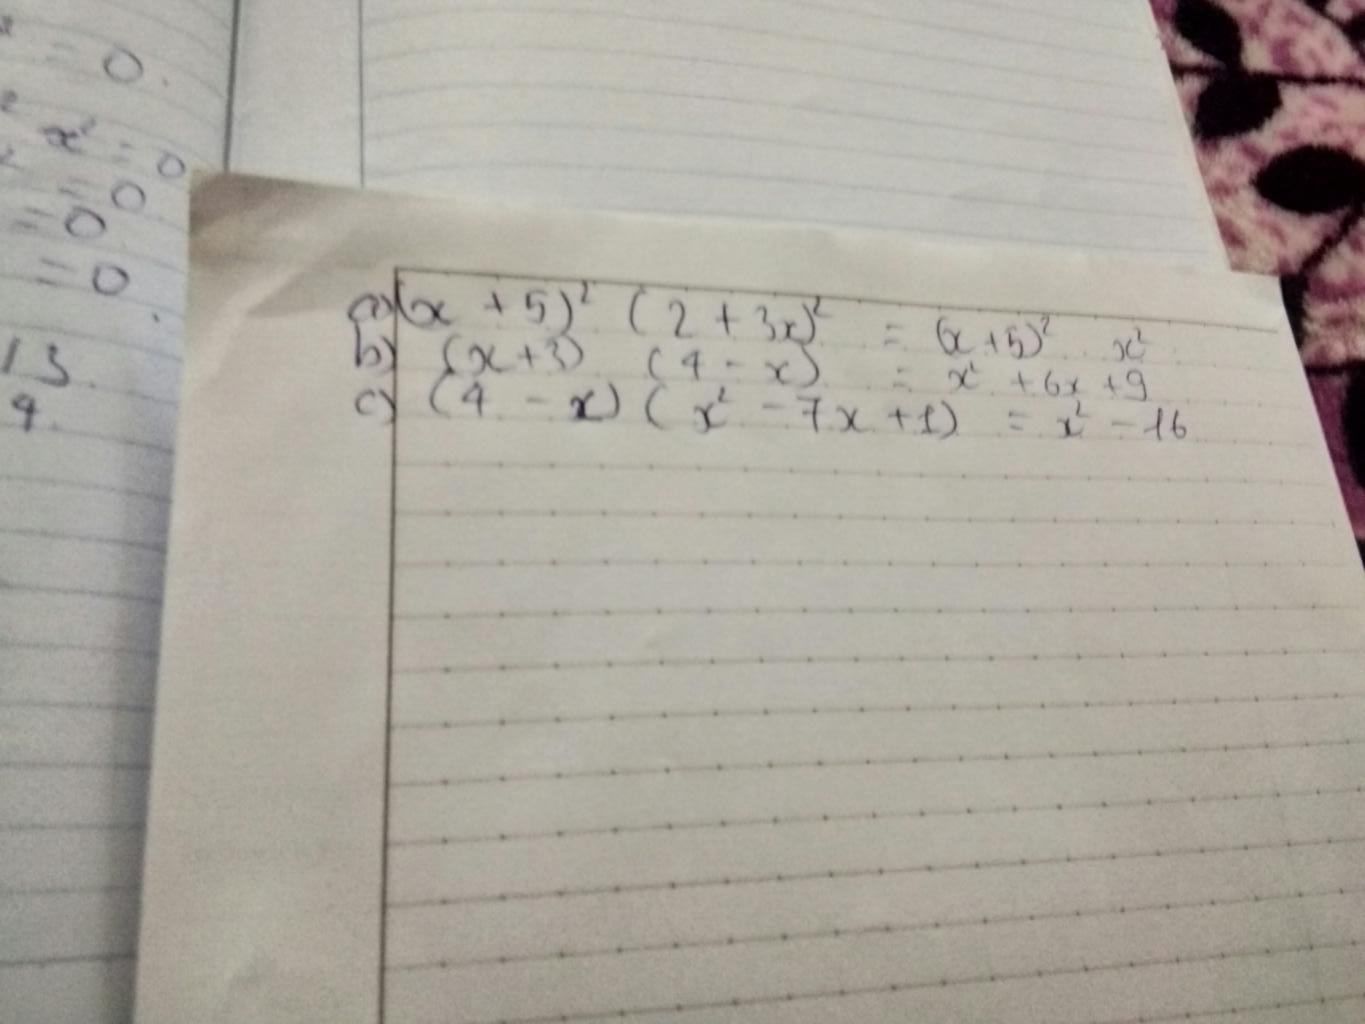 = 0.
x² = 0
= 0
= 0
= 0
13
9
a) (x + 5)² (2 + 3x)² = (x+5)² x²
b) (x+3) (4 - x) = x² + 6x + 9
c) (4 - x) ( x² - 7x + 1) = x² - 16